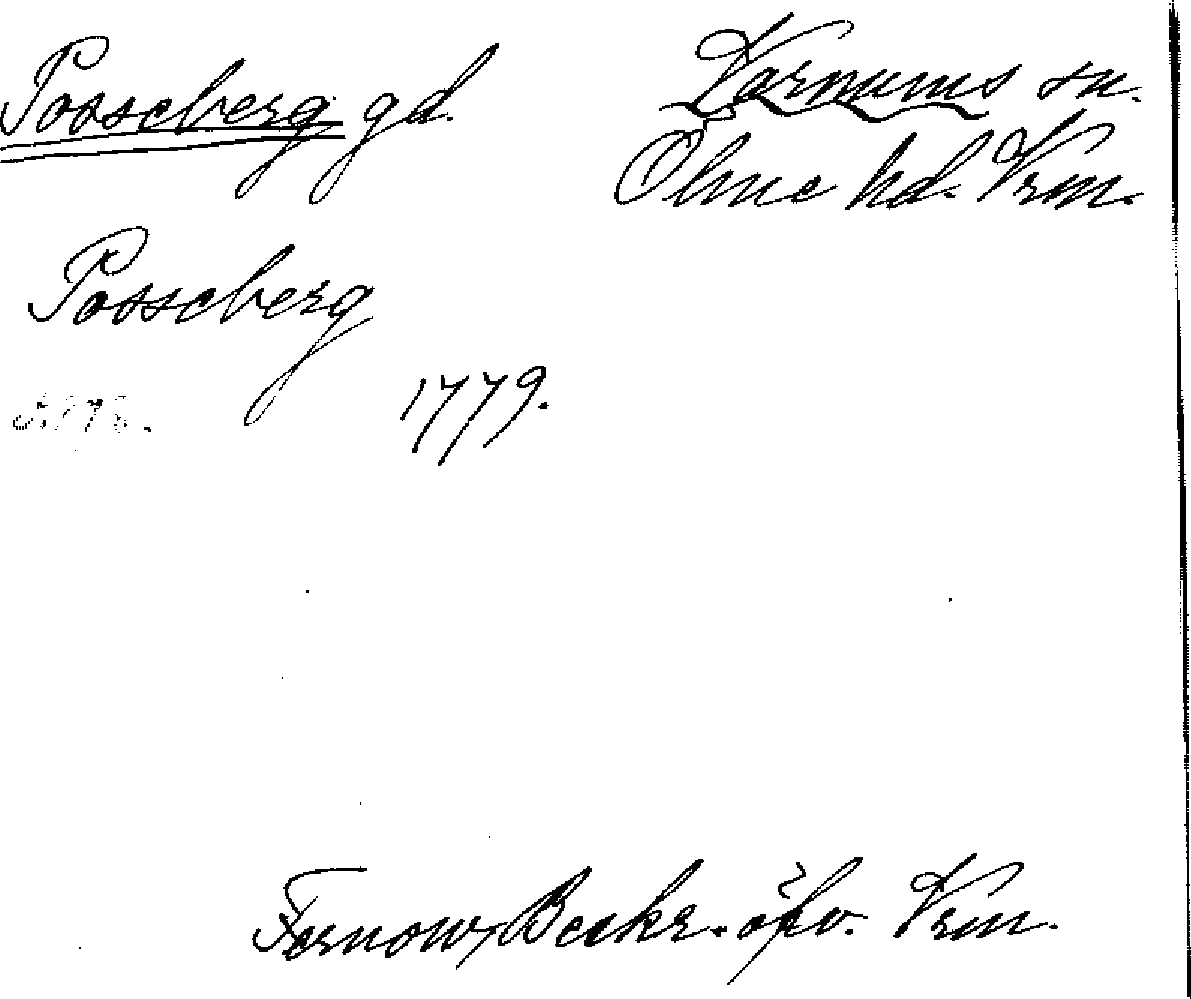 Posseberg gd. Varnums sn.
Ölme hd. Vrm.
Posseberg
1779.
Fernow, Beskr. öfv. Vrm.